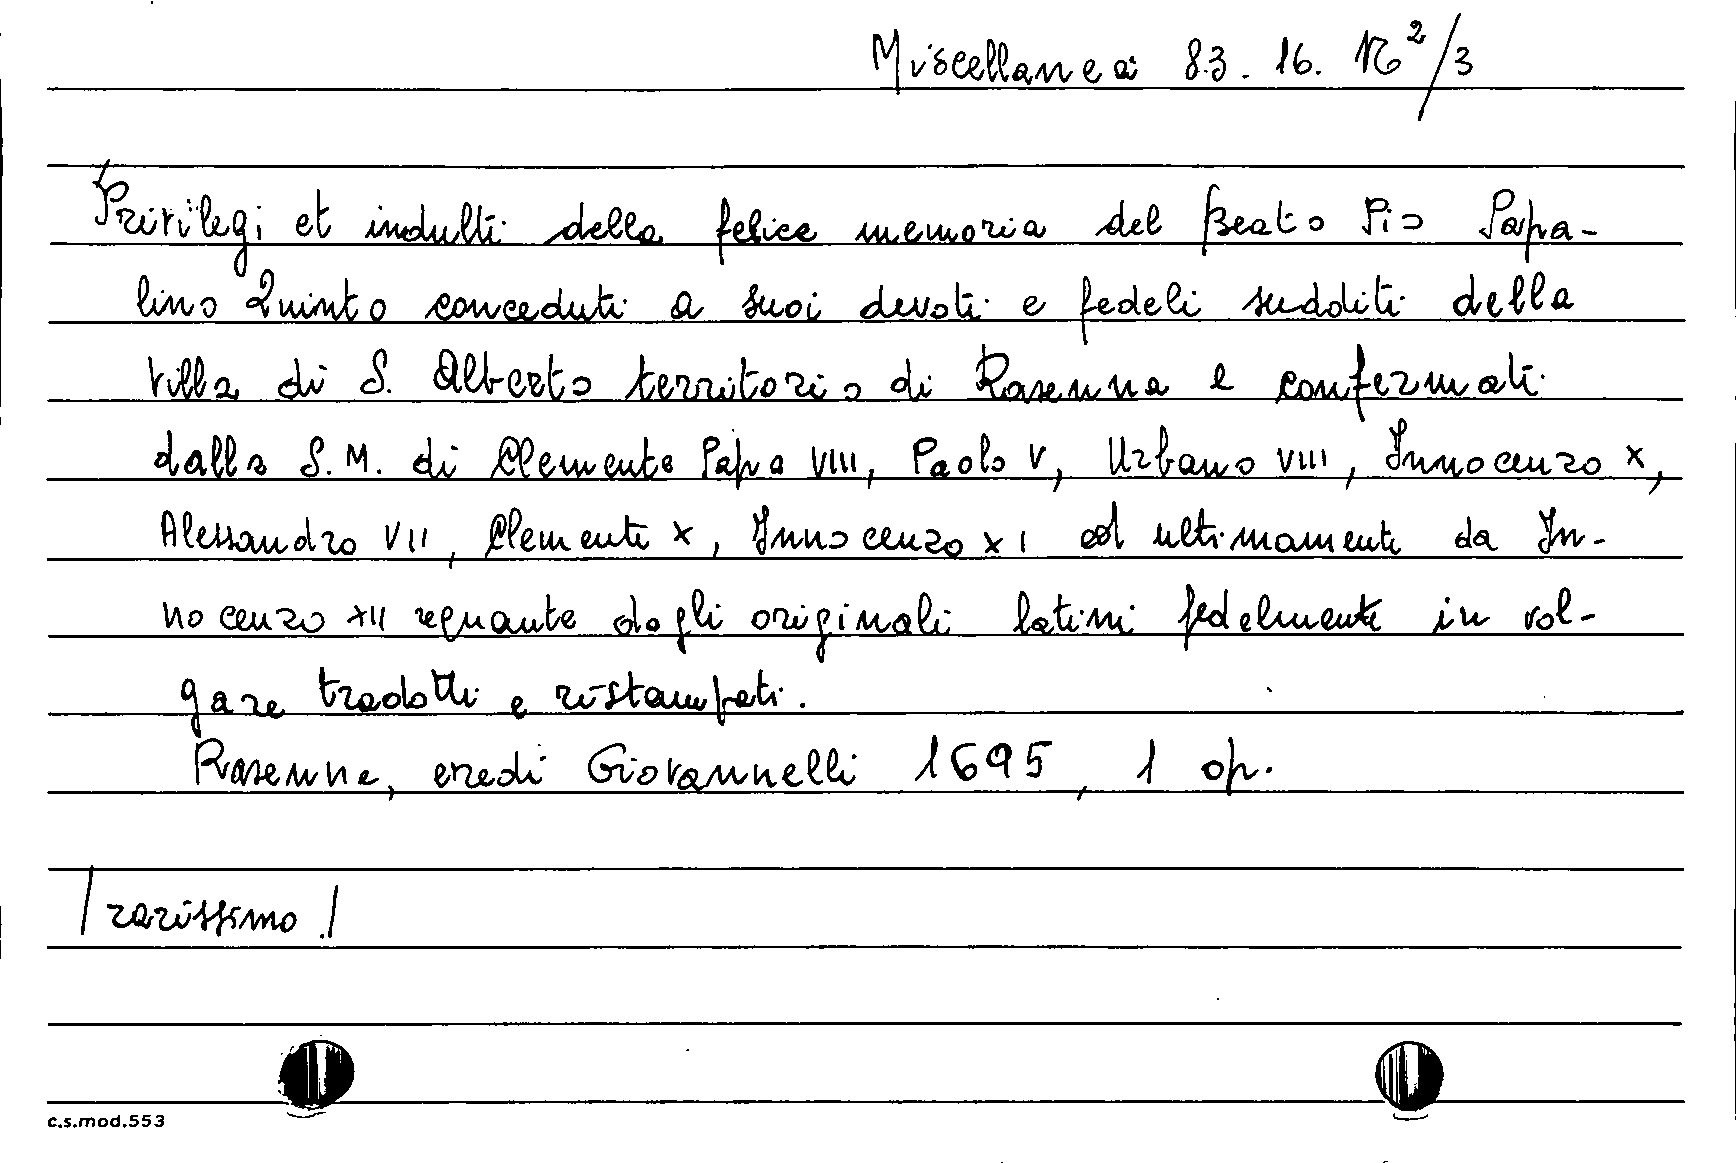 Miscellanea 83. 16. R²/3
Privilegi et indulti della felice memoria del Beato Pio Papa-
lino Quinto conceduti a suoi devoti e fedeli sudditi della
villa di S. Alberto territorio di Ravenna e confermati
dalla S.M. di Clemente Papa VIII, Paolo V, Urbano VIII, Innocenzo X,
Alessandro VII, Clemente X, Innocenzo XI ed ultimamente da In-
nocenzo XII regnante dagli originali latini fedelmente in vol-
gare tradotti e ristampati.
Ravenna, eredi Giovannelli 1695, 1 op.
/rarissimo!/
c.s.mod.553